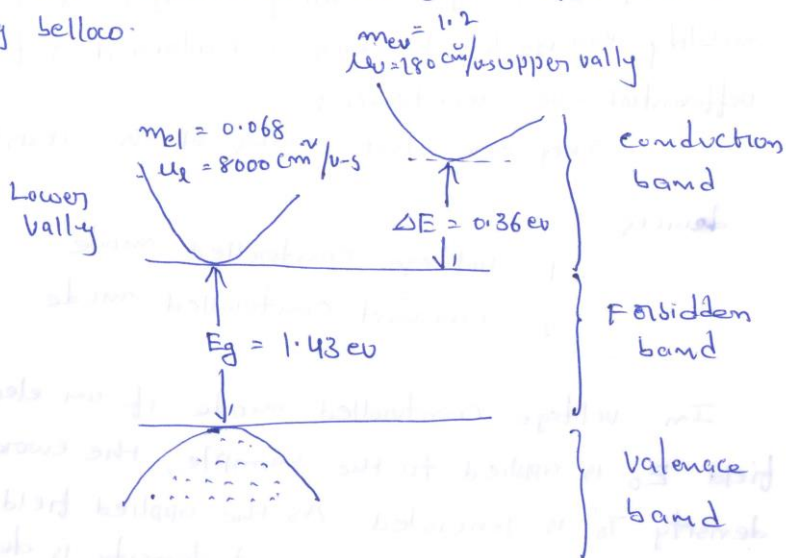 g belloco.
meu = 1.2
μu = 180 cm²/vs upper vally
mel = 0.068
μl = 8000 cm²/v-s
Lower
vally
ΔE = 0.36 ev
conduction
band
Eg = 1.43 ev
Forbidden
band
valenace
band